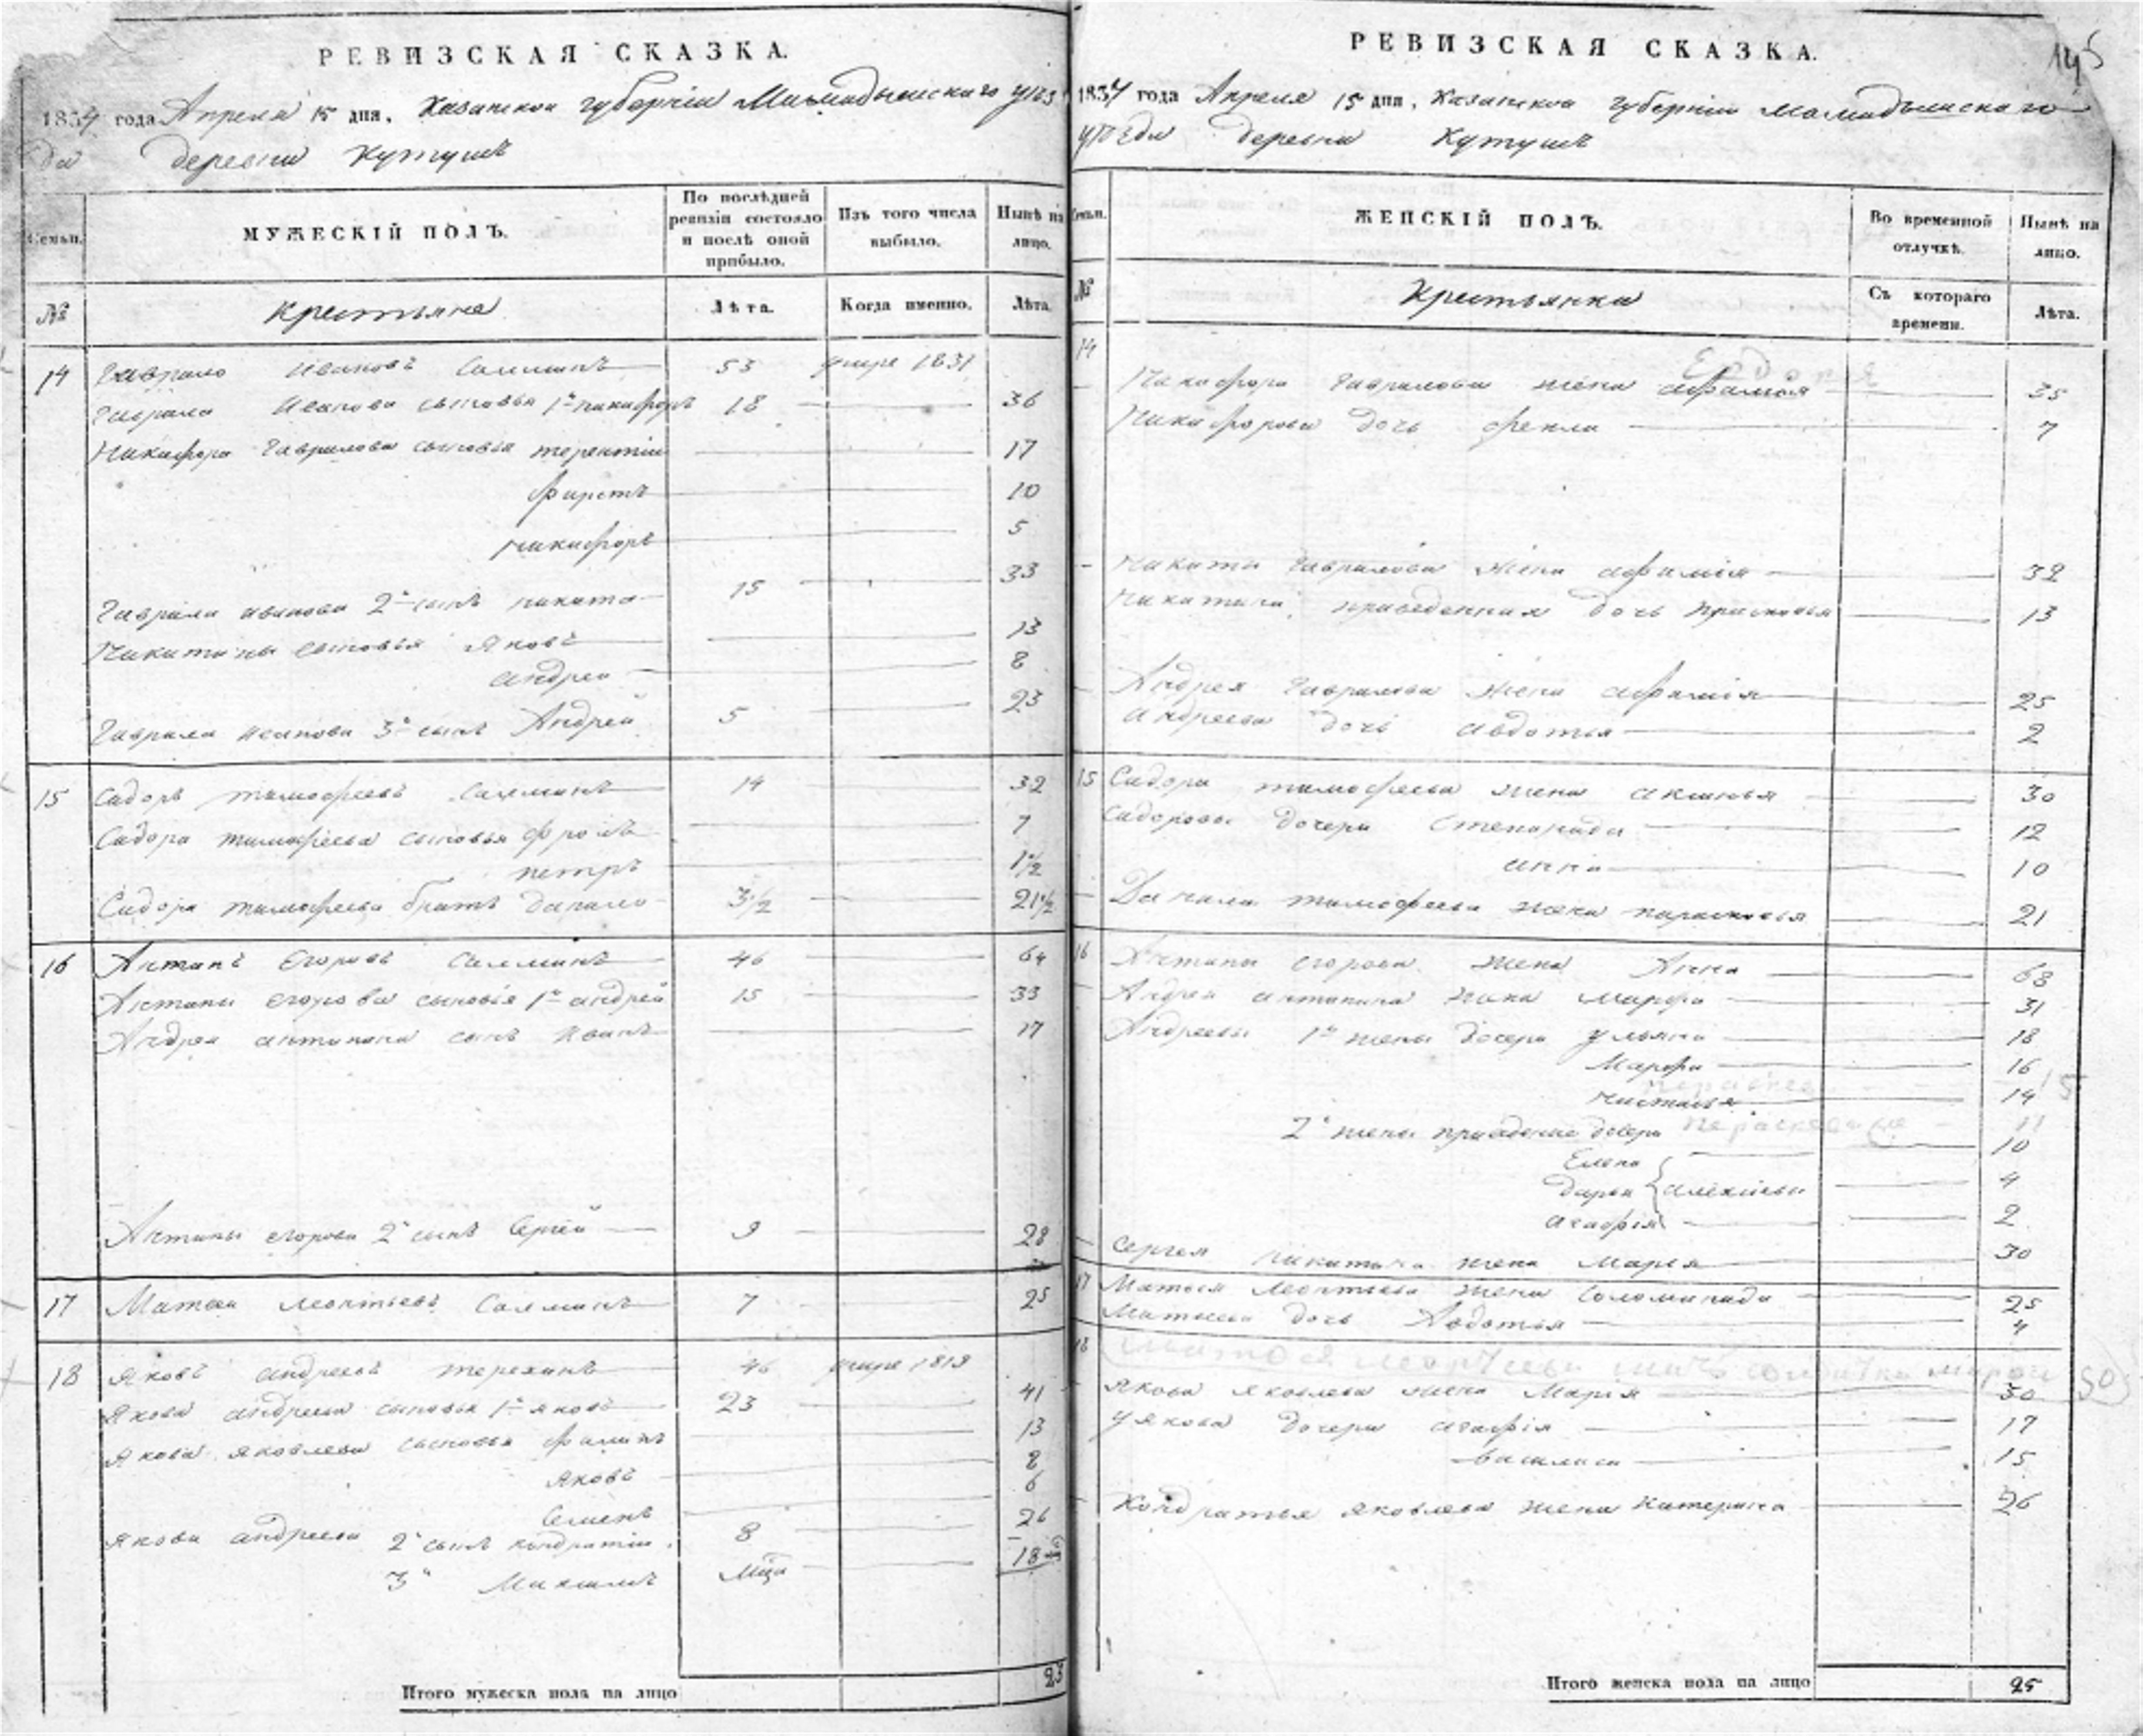 РЕВИЗСКАЯ СКАЗКА.
1834 года Апреля 15 дня, Казанской губерніи Мамадышскаго уѣз
да деревни Кутушъ
Семьи.
МУЖЕСКІЙ ПОЛЪ.
По послѣдней ревизіи состояло и послѣ оной прибыло.
Изъ того числа выбыло.
Нынѣ на лицо.
№
Крестьяне
Лѣта.
Когда именно.
Лѣта.
14 Гаврило Ивановъ 53 умре 1831
Гаврила Иванова сыновья 1й никифоръ 18 36
Никифора Гаврилова сыновья терентіи 17
фирстъ 10
никифоръ 5
Гаврила иванова 2й сынъ никита 15 33
Никитины сыновья Яковъ 13
андреи 8
Гаврила иванова 3й сынъ Андрей 5 23
15 Сидоръ тимофеевъ 14 32
Сидора тимофеева сыновья фролъ 7
петръ 1 1/2
Сидора тимофеева братъ данило 3 1/2 21 1/2
16 Антипъ Егоровъ 46 64
Антипы егорова сыновья 1й андрей 15 33
Андрея антипина сынъ иванъ 17
Антипы егорова 2й сынъ Сергей 9 28
17 Матвеи леонтьевъ 7 25
18 Яковъ андреевъ терехинъ 46 умре 1819
Якова андреева сыновья 1й яковъ 23 41
Якова яковлева сыновья 13
Яковъ 8
Семенъ 6
Якова андреева 2й сынъ кондратіи 8 26
3й Максимъ 18
Итого мужеска пола на лицо 23
145
РЕВИЗСКАЯ СКАЗКА.
1834 года Апреля 15 дня, Казанской губерніи мамадышскаго
уѣзда деревни Кутушъ
Семьи.
ЖЕНСКІЙ ПОЛЪ.
Во временной отлучкѣ.
Нынѣ на лицо.
№
Крестьянки
Съ котораго времени.
Лѣта.
14
Никифора Гаврилова жена афимія 35
Никифорова дочь фекла 7
Никиты Гаврилова жена афимія 32
Никитина приведенная дочь прасковья 13
Андрея Гаврилова жена афимія 25
Андреева дочь авдотья 2
15 Сидора тимофеева жена аксинья 30
Сидоровы дочери Степанида 12
анна 10
Данила тимофеева жена парасковья 21
16 Антипы егорова жена Анна 63
Андрея антипина жена марфа 31
Андреевы 1й жены дочери ульяна 18
Марфа 16
настасья 14
2й жены приведенные дочери 10
Елена
дарья 4
агафія 2
Сергея жена Марія 30
17 Матвея Леонтьева жена Соломанида 25
Матвеева дочь Авдотья 4
18
Якова Яковлева жена Марія 30
У якова дочери агафія 17
василиса 15
Кондратья яковлева жена катерина 26
Итого женска пола на лицо 25